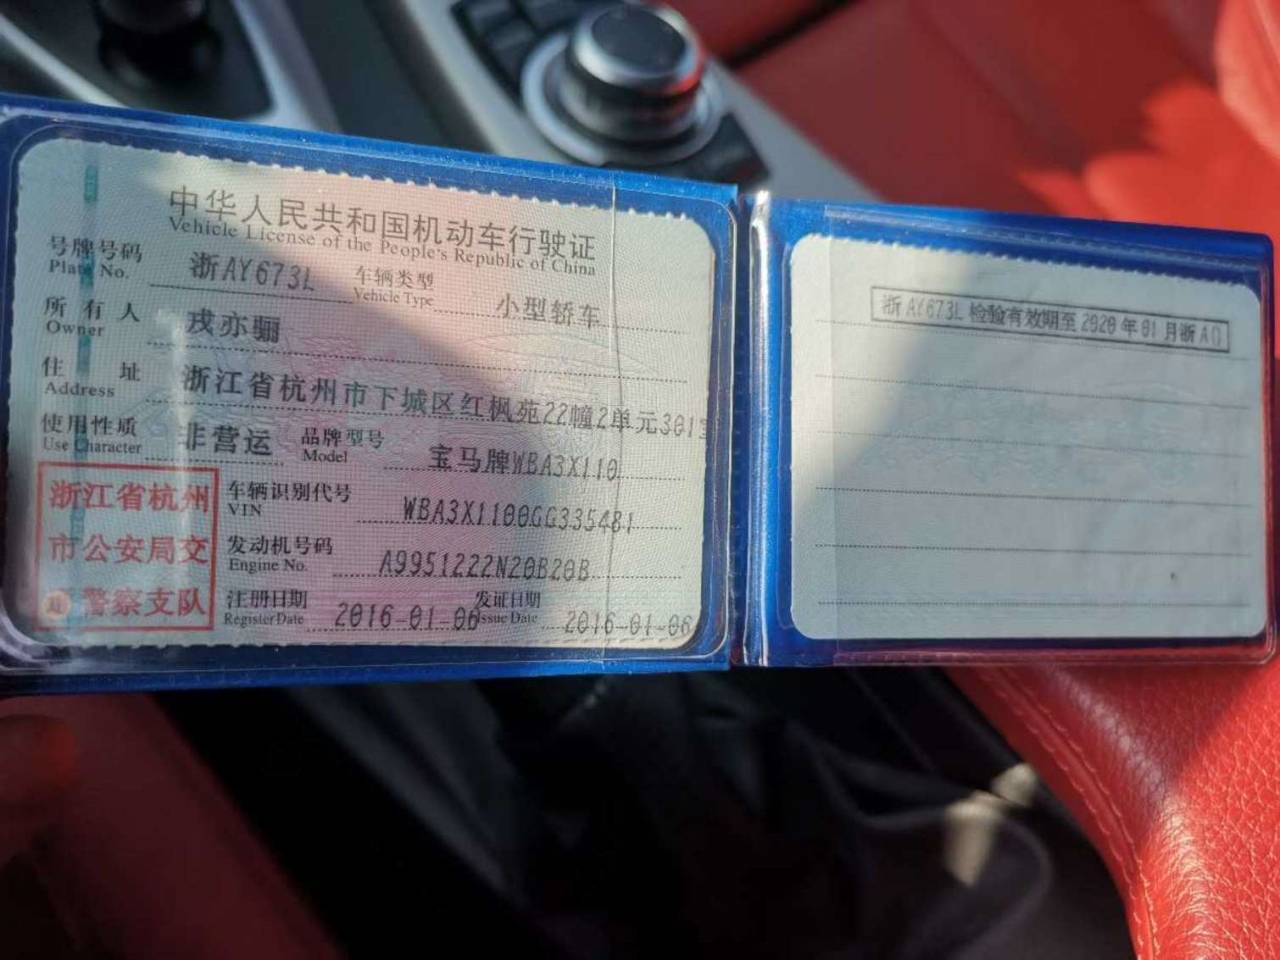 中华人民共和国机动车行驶证
Vehicle License of the People's Republic of China
号牌号码 浙AY673L 车辆类型 小型轿车
Plate No. Vehicle Type
所有人 戎亦骊
Owner
住址 浙江省杭州市下城区红枫苑22幢2单元301室
Address
使用性质 非营运 品牌型号 宝马牌WBA3X110
Use Character Model
浙江省杭州市公安局交警察支队
车辆识别代号 WBA3X1100GG335481
VIN
发动机号码 A9951222N20B20B
Engine No.
注册日期 2016-01-06 发证日期 2016-01-06
Register Date Issue Date
浙AY673L 检验有效期至2020年01月浙A()